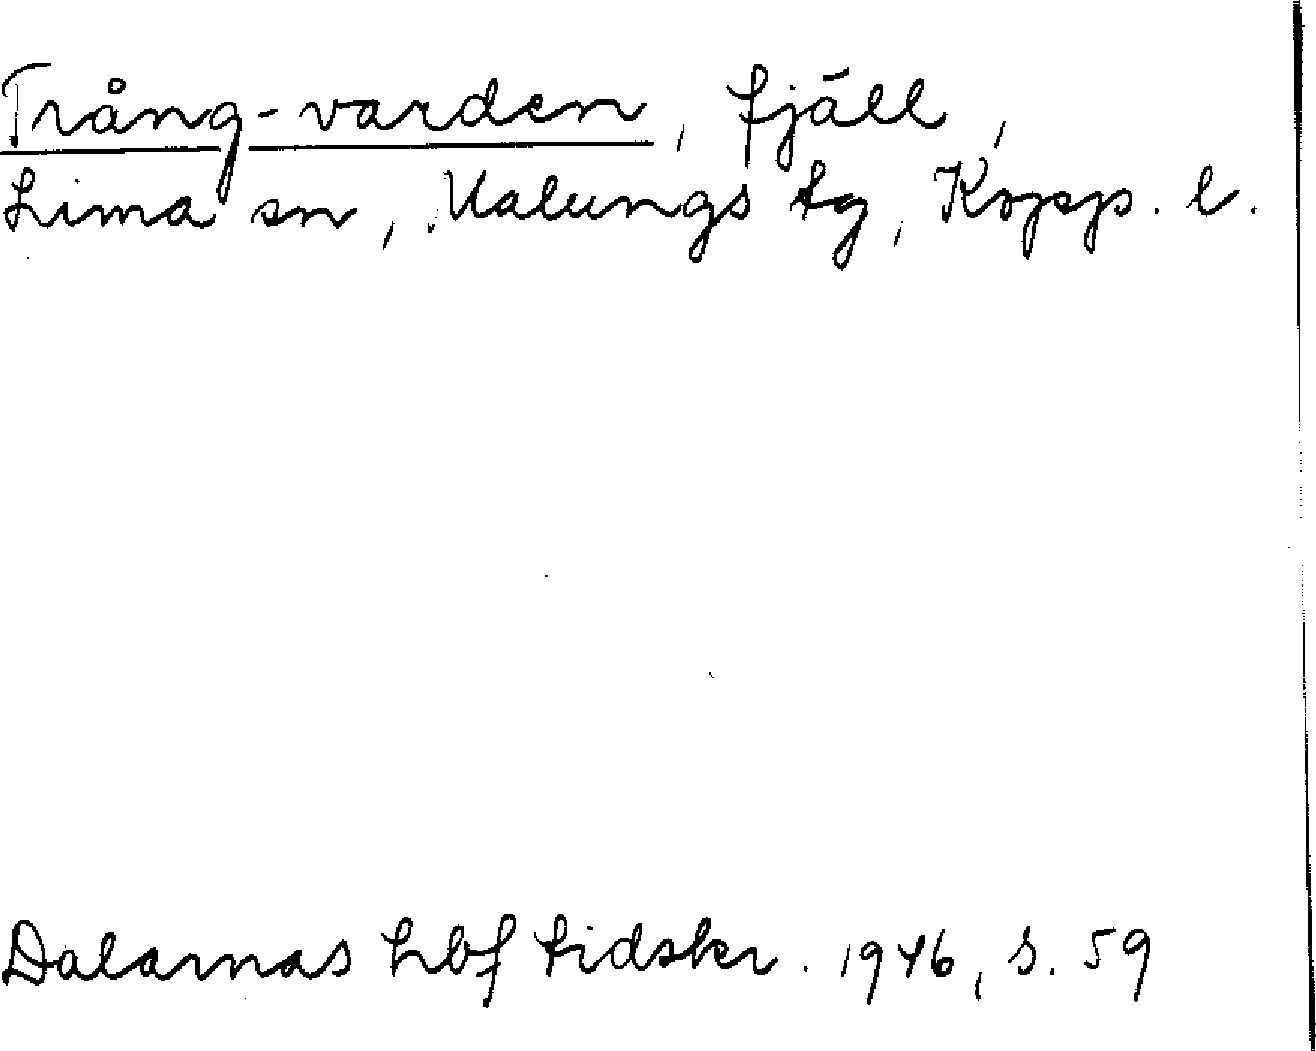 Trång-varden, fjäll,
Lima sn, Malungs tg, Kopp. l.
Dalarnas hbf tidskr. 1946, s. 59